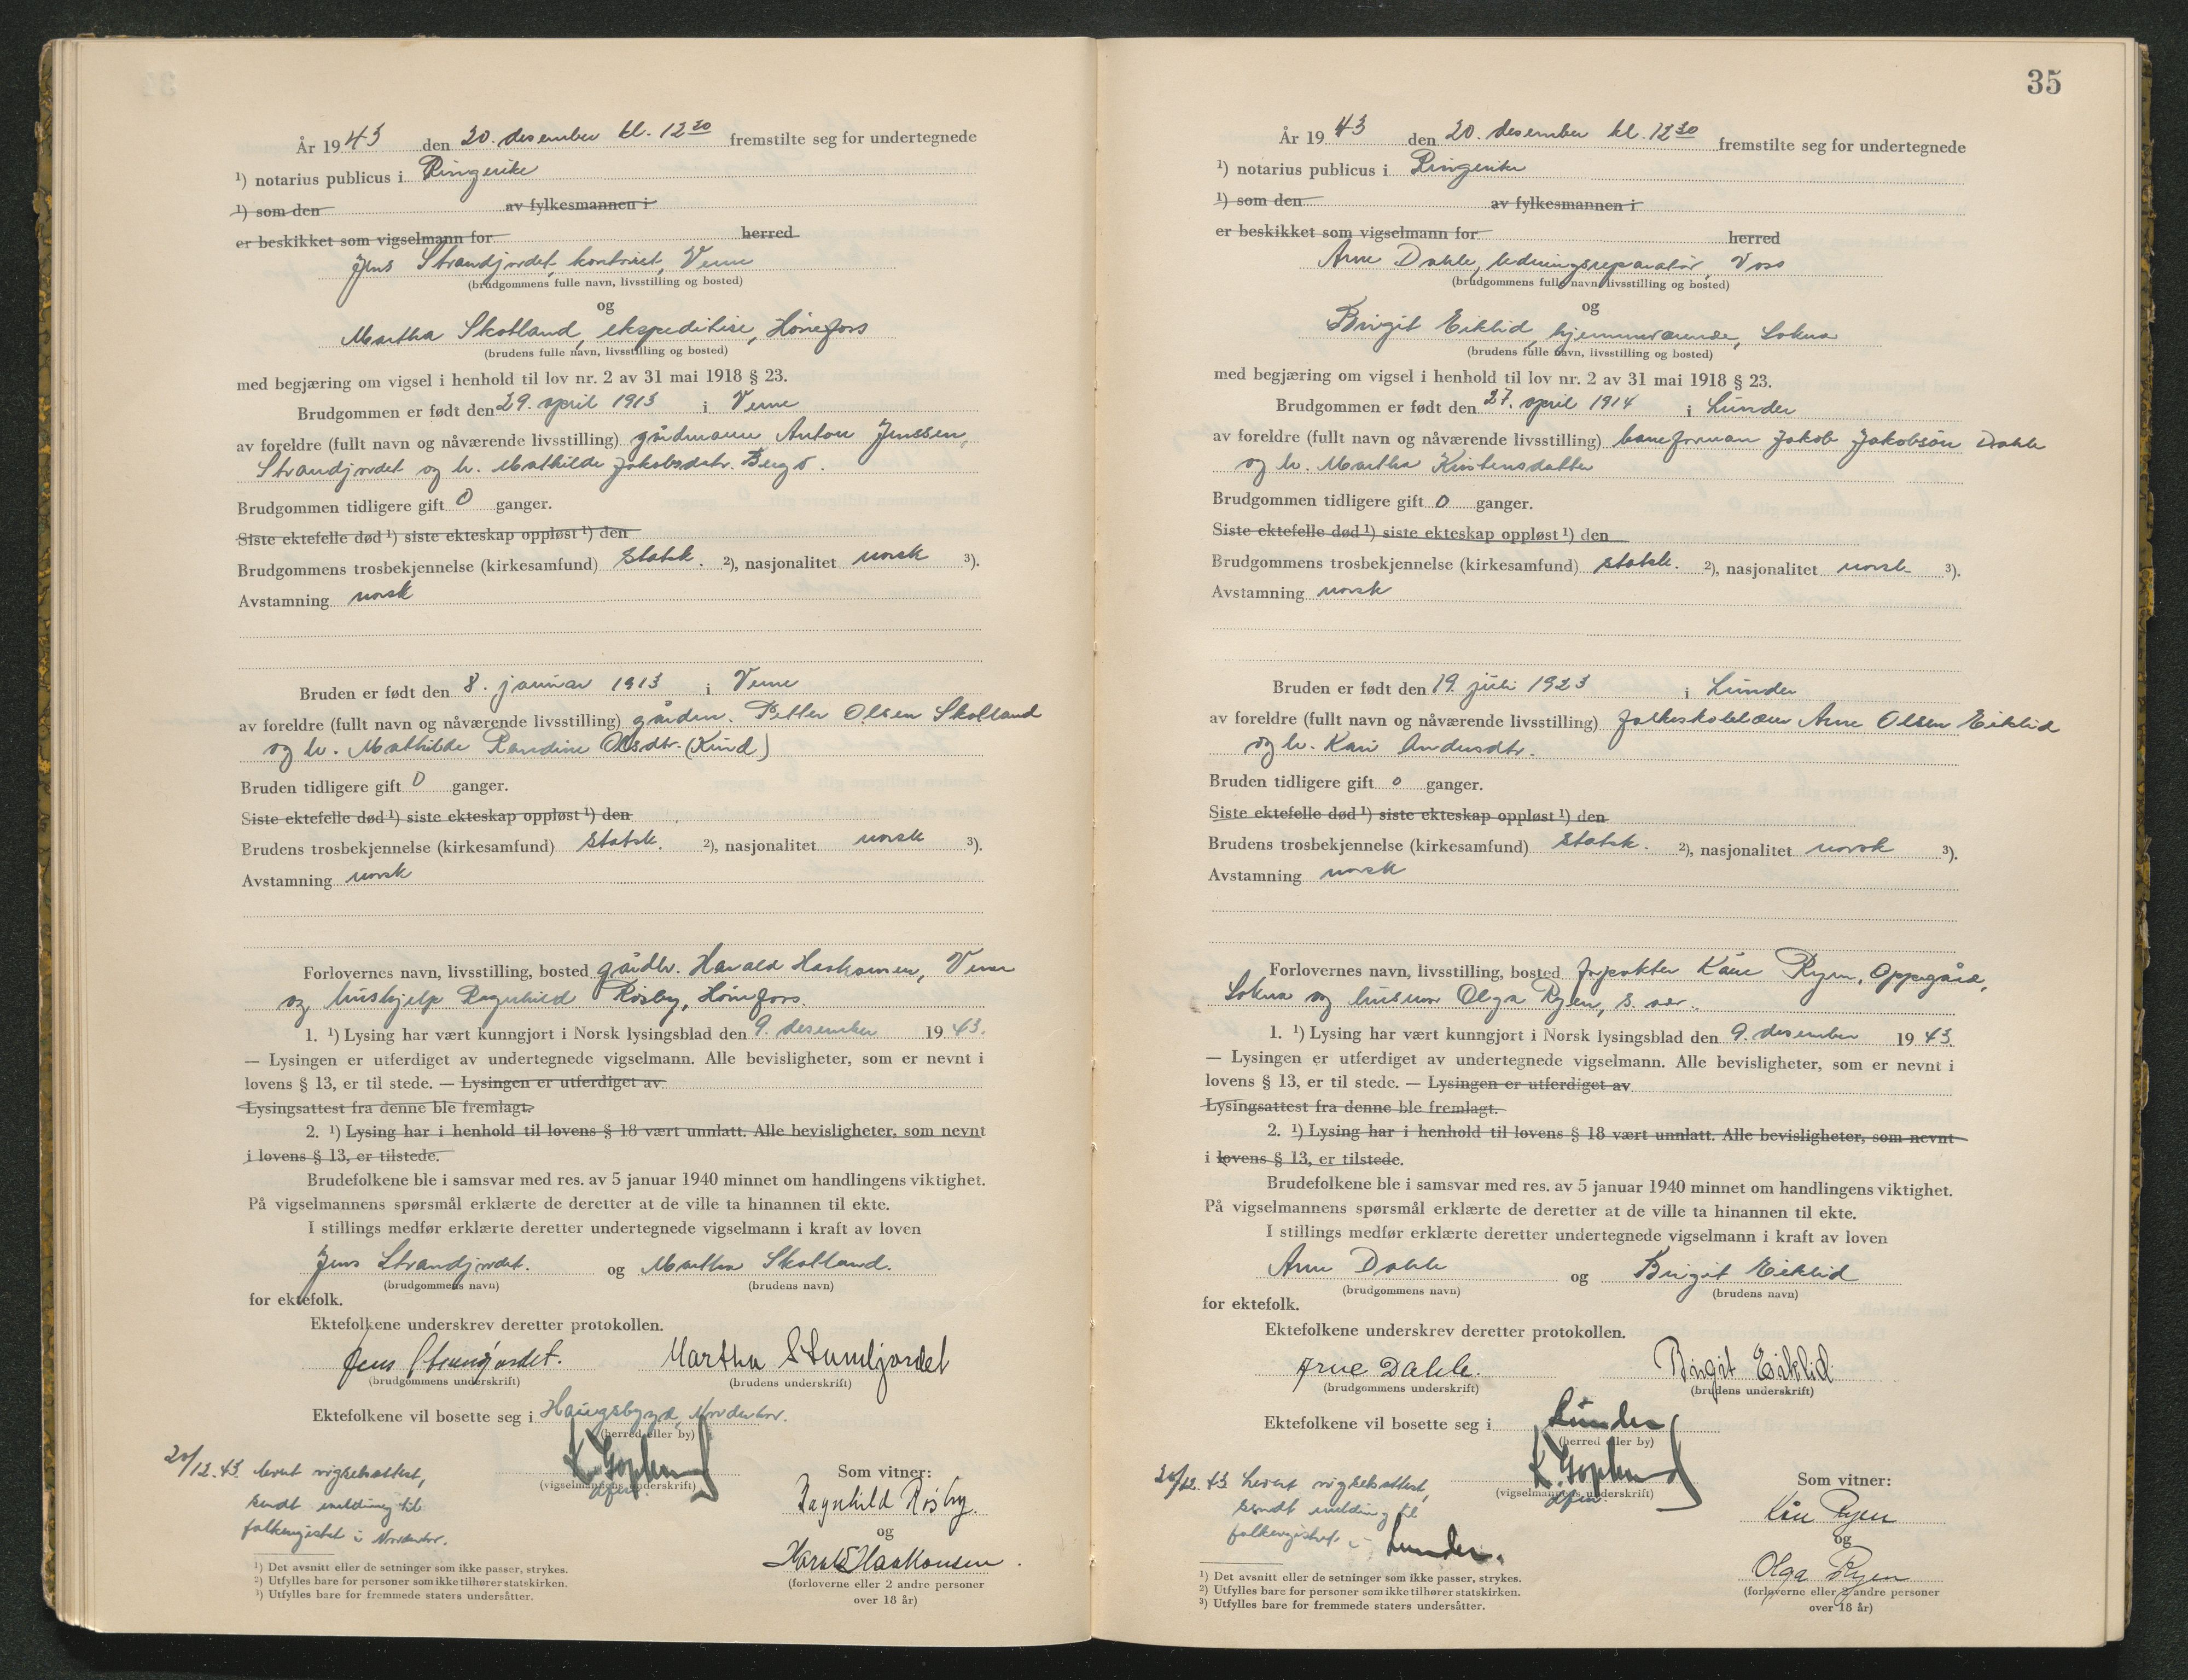 År 1943 den 20. desember kl. 12 30 fremstilte seg for undertegnede
¹) notarius publicus i Ringerike
¹) som den av fylkesmannen i
er beskikket som vigselmann for herred
Jens Strandjordet, kontorist, Verne
(brudgommens fulle navn, livsstilling og bosted)
og
Martha Skotland, ekspeditrise, Hønefoss
(brudens fulle navn, livsstilling og bosted)
med begjæring om vigsel i henhold til lov nr. 2 av 31 mai 1918 § 23.
Brudgommen er født den 29. april 1913 i Verne
av foreldre (fullt navn og nåværende livsstilling) gårdmann Anton Jenssen
Strandjordet og h. Mathilde Jakobsdatr. Bergo.
Brudgommen tidligere gift 0 ganger.
Siste ektefelle død ¹) siste ekteskap oppløst ¹) den
Brudgommens trosbekjennelse (kirkesamfund) Statsk. ²), nasjonalitet norsk ³).
Avstamning norsk
Bruden er født den 8. januar 1913 i Verne
av foreldre (fullt navn og nåværende livsstilling) gårdm. Petter Olsen Skotland
og h. Mathilde Randine Olsdtr. (Kind)
Bruden tidligere gift 0 ganger.
Siste ektefelle død ¹) siste ekteskap oppløst ¹) den
Brudens trosbekjennelse (kirkesamfund) Statsk. ²), nasjonalitet norsk ³).
Avstamning norsk
Forlovernes navn, livsstilling, bosted gårdbr. Harald Haakonsen, Verne
og hushjelp Ragnhild Røsby, Hønefoss.
1. ¹) Lysing har vært kunngjort i Norsk lysingsblad den 9. desember 1943.
— Lysingen er utferdiget av undertegnede vigselmann. Alle bevisligheter, som er nevnt i
lovens § 13, er til stede. — Lysingen er utferdiget av
Lysingsattest fra denne ble fremlagt.
2. ¹) Lysing har i henhold til lovens § 18 vært unnlatt. Alle bevisligheter, som nevnt
i lovens § 13, er tilstede.
Brudefolkene ble i samsvar med res. av 5 januar 1940 minnet om handlingens viktighet.
På vigselmannens spørsmål erklærte de deretter at de ville ta hinannen til ekte.
I stillings medfør erklærte deretter undertegnede vigselmann i kraft av loven
Jens Strandjordet. og Martha Skotland.
(brudgommens navn) (brudens navn)
for ektefolk.
Ektefolkene underskrev deretter protokollen.
Jens Strandjordet. Martha Strandjordet
(brudgommens underskrift) (brudens underskrift)
Ektefolkene vil bosette seg i Haugsbygd, Norderhov.
(herred eller by)
(vigselmannens underskrift)
20/12.43. levert vigselsattest,
sendt melding til
folkeregistret i Norderhov.
Som vitner:
Ragnhild Røsby
og
Harald Haakonsen.
(forloverne eller 2 andre personer
over 18 år)
¹) Det avsnitt eller de setninger som ikke passer, strykes.
²) Utfylles bare for personer som ikke tilhører statskirken.
³) Utfylles bare for fremmede staters undersåtter.
35
År 1943 den 20. desember kl. 12 30 fremstilte seg for undertegnede
¹) notarius publicus i Ringerike
¹) som den av fylkesmannen i
er beskikket som vigselmann for herred
Arne Dahle, ledningsreparatør, Voss
(brudgommens fulle navn, livsstilling og bosted)
og
Birgit Eiklid, hjemmeværende, Sokna
(brudens fulle navn, livsstilling og bosted)
med begjæring om vigsel i henhold til lov nr. 2 av 31 mai 1918 § 23.
Brudgommen er født den 27. april 1914 i Lunder
av foreldre (fullt navn og nåværende livsstilling) baneforman Jakob Jakobsøn Dahle
og h. Martha Kristensdatter
Brudgommen tidligere gift 0 ganger.
Siste ektefelle død ¹) siste ekteskap oppløst ¹) den
Brudgommens trosbekjennelse (kirkesamfund) statsk. ²), nasjonalitet norsk ³).
Avstamning norsk
Bruden er født den 19. juli 1923 i Lunder
av foreldre (fullt navn og nåværende livsstilling) folkeskolelærer Arne Olsen Eiklid
og h. Kari Andersdtr.
Bruden tidligere gift 0 ganger.
Siste ektefelle død ¹) siste ekteskap oppløst ¹) den
Brudens trosbekjennelse (kirkesamfund) Statsk. ²), nasjonalitet norsk ³).
Avstamning norsk
Forlovernes navn, livsstilling, bosted forpakter Kåre Ryen, Oppegård,
Sokna og husmor Olga Ryen, s. st.
1. ¹) Lysing har vært kunngjort i Norsk lysingsblad den 9. desember 1943.
— Lysingen er utferdiget av undertegnede vigselmann. Alle bevisligheter, som er nevnt i
lovens § 13, er til stede. — Lysingen er utferdiget av
Lysingsattest fra denne ble fremlagt.
2. ¹) Lysing har i henhold til lovens § 18 vært unnlatt. Alle bevisligheter, som nevnt
i lovens § 13, er tilstede.
Brudefolkene ble i samsvar med res. av 5 januar 1940 minnet om handlingens viktighet.
På vigselmannens spørsmål erklærte de deretter at de ville ta hinannen til ekte.
I stillings medfør erklærte deretter undertegnede vigselmann i kraft av loven
Arne Dahle og Birgit Eiklid
(brudgommens navn) (brudens navn)
for ektefolk.
Ektefolkene underskrev deretter protokollen.
Arne Dahle. Birgit Eiklid
(brudgommens underskrift) (brudens underskrift)
Ektefolkene vil bosette seg i Lunder
(herred eller by)
(vigselmannens underskrift)
20/12.43 levert vigselsattest,
sendt melding til
folkeregistret i Lunder.
Som vitner:
Kåre Ryen
og
Olga Ryen
(forloverne eller 2 andre personer
over 18 år)
¹) Det avsnitt eller de setninger som ikke passer, strykes.
²) Utfylles bare for personer som ikke tilhører statskirken.
³) Utfylles bare for fremmede staters undersåtter.